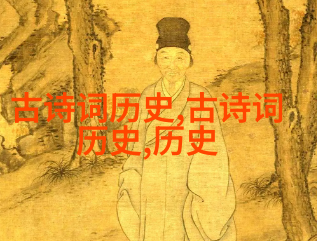 古诗词历史,古诗词
历史,历史